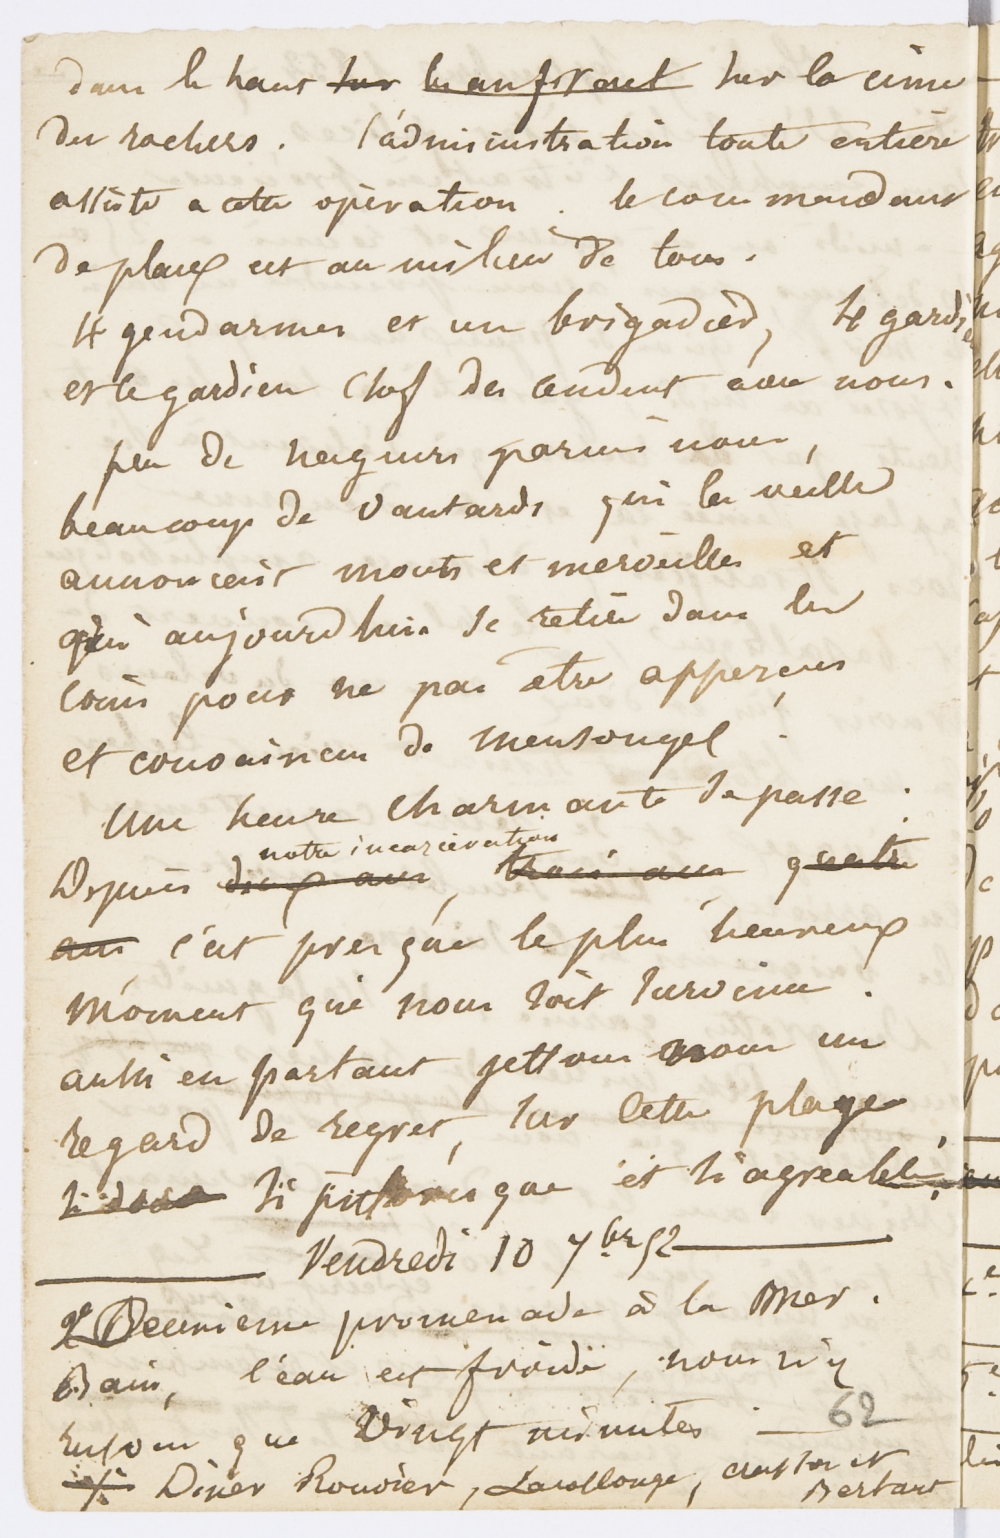 dans le haut sur sur la cime
des rochers. l'administration toute entière
assiste a cette opération. le commandant
de place est au milieu de tous.
4 gendarmes et un brigadier, 4 gardiens
et le gardien Chef descendent avec nous.
peu de nageurs parmi nous,
beaucoup de vantards qui la veille
annoncait monts et merveilles et
qui aujourdhui se retire dans les
coins pour ne pas être apperçus
et convaincus de mensonges.
Une heure charmante se passe.
notre incarcération
Depuis deux ans, trois ans quatre
ans c'est presque le plus heureux
moment qui nous soit survenu.
aussi en partant jettons nous un
regard de regret, sur cette plage
si si pittoresque et si agreable,
Vendredi 10 7bre 52
2e Deuxieme promenade à la Mer.
Bain, l'eau est froide, nous n'y
restons que Vingt minutes
62
Diner Rouvier, et
Bertaut